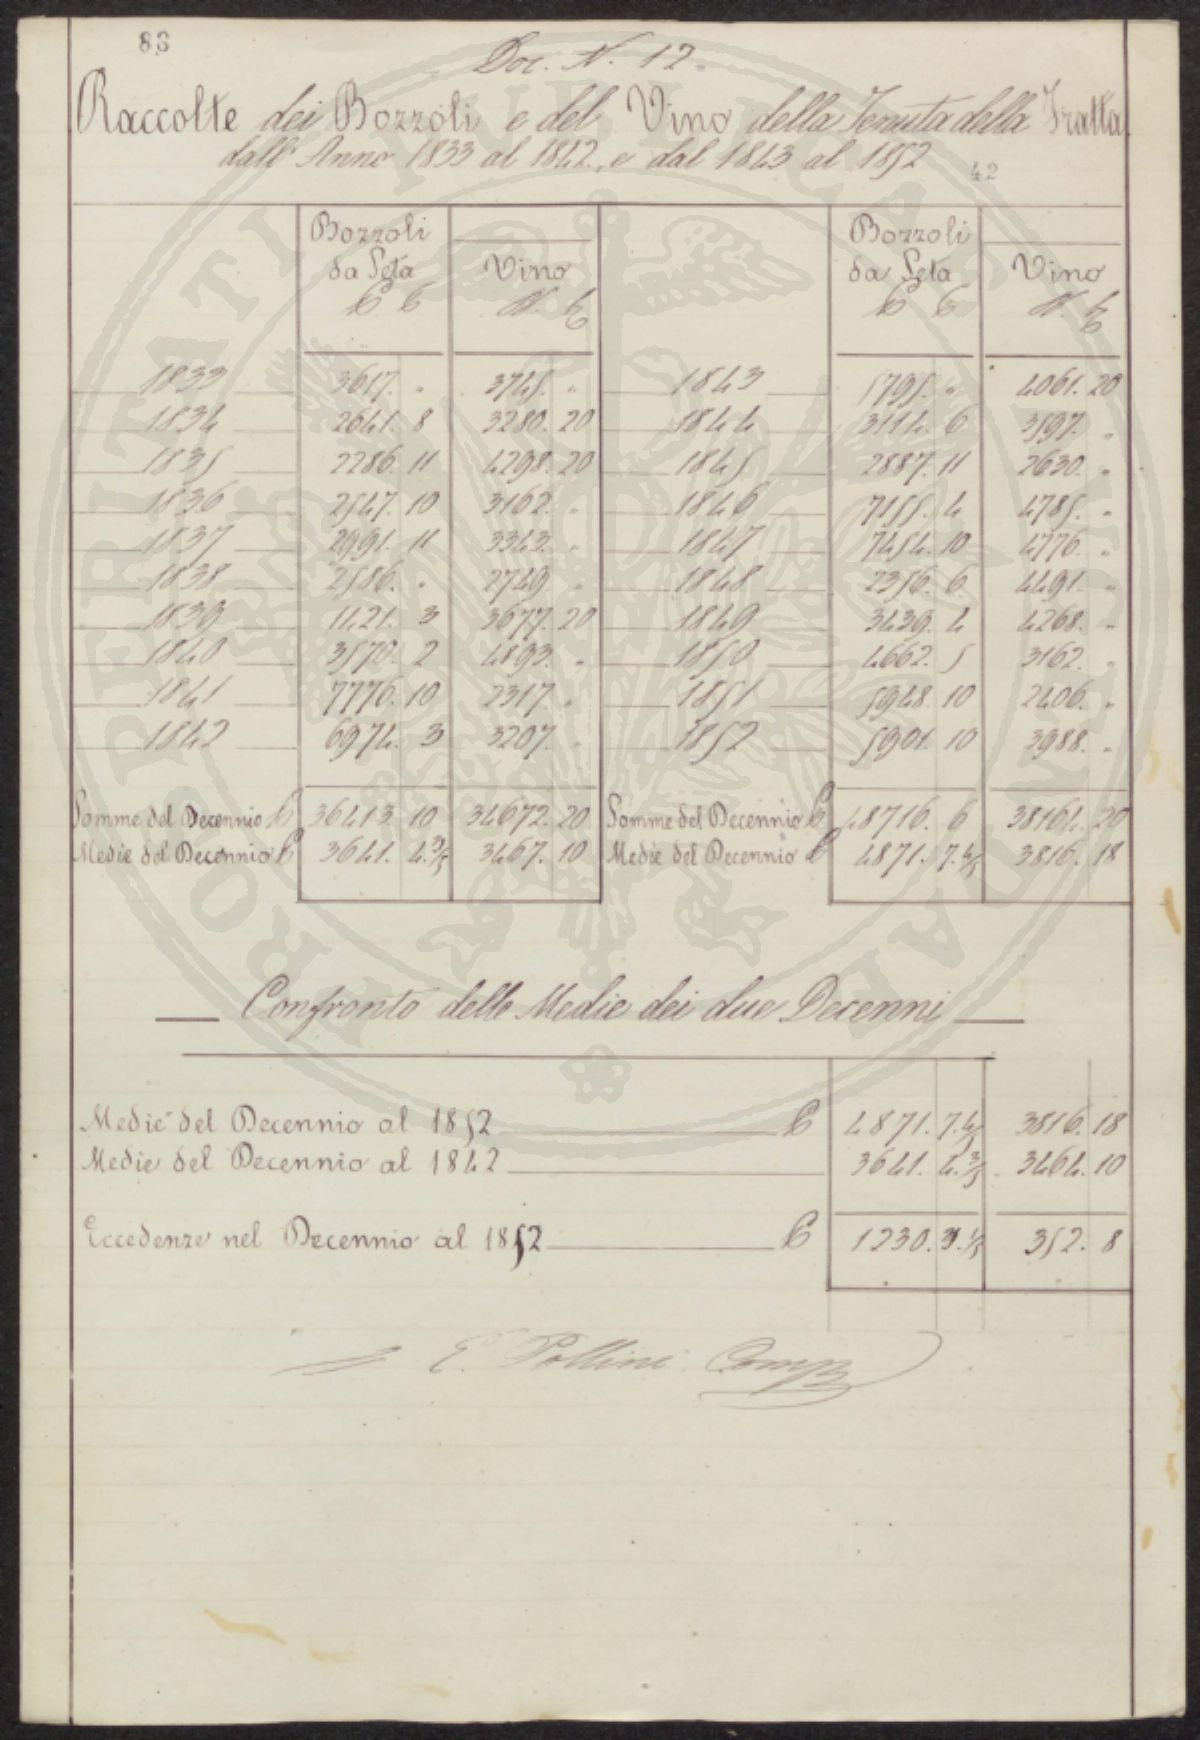 83
Doc. N. 12.
Raccolte dei Bozzoli e del Vino della Tenuta della Fratta
dall' Anno 1833 al 1842, e dal 1843 al 1852
42
Bozzoli da Seta Vino Bozzoli da Seta Vino
1833 3617. " 3745. " 1843 5795. " 4061. 20
1834 2641. 8 3280. 20 1844 3114. 6 3597. "
1835 2286. 11 4298. 20 1845 2887. 11 2630. "
1836 2547. 10 3162. " 1846 7155. 4 4785. "
1837 2991. 11 3343. " 1847 7454. 10 4776. "
1838 2586. " 2749. " 1848 2356. 6 4491. "
1839 1421. 3 3677. 20 1849 3439. 4 4268. "
1840 3570. 2 4893. " 1850 4662. 5 3162. "
1841 7776. 10 2317. " 1851 5948. 10 2406. "
1842 6974. 3 3207. " 1852 5901. 10 3988. "
Somme del Decennio 36413. 10 34672. 20 Somme del Decennio 48716. 6 38164. 20
Medie del Decennio 3641. 4. 3/5 3467. 10 Medie del Decennio 4871. 7. 4/5 3816. 18
Confronto delle Medie dei due Decenni
Medie del Decennio al 1852 4871. 7. 4/5 3816. 18
Medie del Decennio al 1842 3641. 4. 3/5 3464. 10
Eccedenze nel Decennio al 1852 1230. 3. 1/5 352. 8
E. Pollini Comp
PROSPERITATI PUBLICAE AUGENDAE